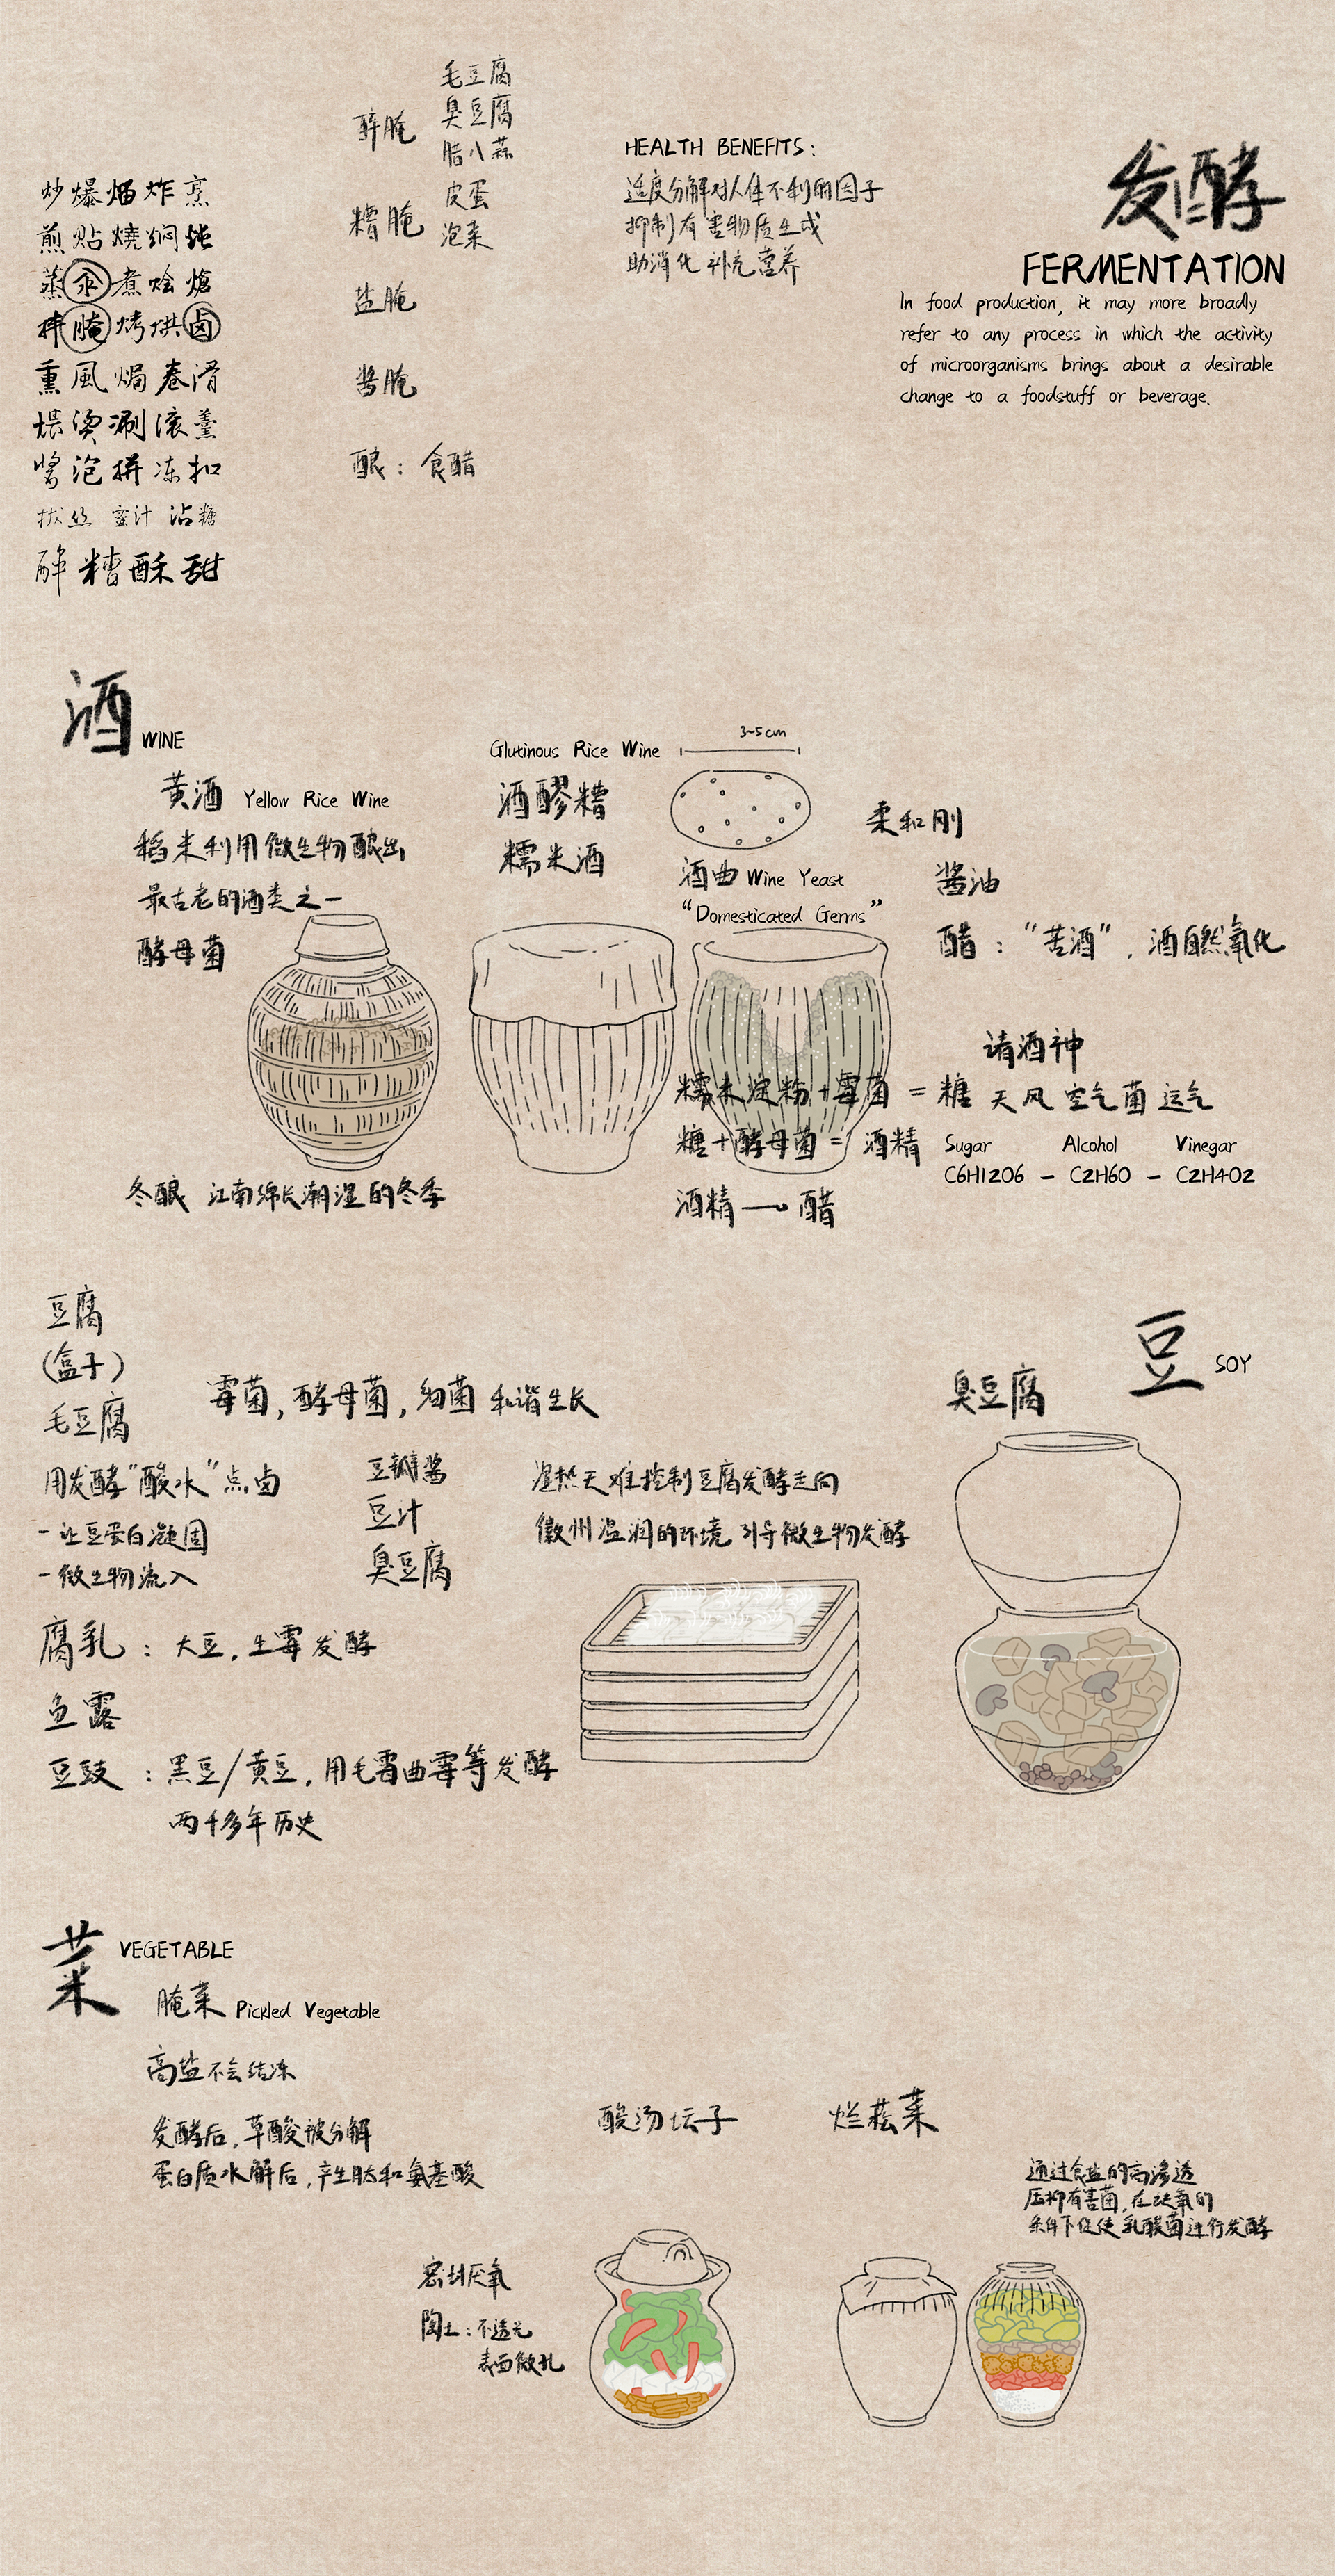 发酵
FERMENTATION
In food production, it may more broadly
refer to any process in which the activity
of microorganisms brings about a desirable
change to a foodstuff or beverage.
HEALTH BENEFITS:
适度分解对人体不利的因子
抑制有害物质生成
助消化 补充营养
醉腌
糟腌
盐腌
酱腌
酿：食醋
毛豆腐
臭豆腐
腊八蒜
皮蛋
泡菜
炒爆熘炸烹
煎贴烧焖炖
蒸汆煮烩炝
拌腌烤烘卤
熏風焗卷滑
煨烫涮滚羹
酱泡拼冻扣
拔丝 蜜汁 沾糖
醉糟酥甜
酒 WINE
黄酒 Yellow Rice Wine
稻米利用微生物酿出
最古老的酒类之一
酵母菌
冬酿 江南绵长潮湿的冬季
Glutinous Rice Wine
酒醪糟
糯米酒
3~5cm
酒曲 Wine Yeast
“Domesticated Germs”
柔和刚
酱油
醋：“苦酒”，酒自然氧化
请酒神
天风 空气菌 运气
糯米淀粉+霉菌 = 糖
糖+酵母菌 = 酒精
酒精 → 醋
Sugar Alcohol Vinegar
C6H12O6 – C2H6O – C2H4O2
豆 SOY
臭豆腐
豆腐
(盒子)
毛豆腐
霉菌，酵母菌，细菌 和谐生长
用发酵“酸水”点卤
- 让豆蛋白凝固
- 微生物流入
豆瓣酱
豆汁
臭豆腐
湿热天难控制豆腐发酵走向
徽州温润的环境 引导微生物发酵
腐乳：大豆，生霉发酵
鱼露
豆豉：黑豆/黄豆，用毛霉曲霉等发酵
两千多年历史
菜 VEGETABLE
腌菜 Pickled Vegetable
高盐不会结冻
发酵后，草酸被分解
蛋白质水解后，产生肽和氨基酸
酸汤坛子
密封厌氧
陶土：不透光
表面微孔
烂菘菜
通过食盐的高渗透
压抑有害菌，在缺氧的
条件下促使乳酸菌进行发酵